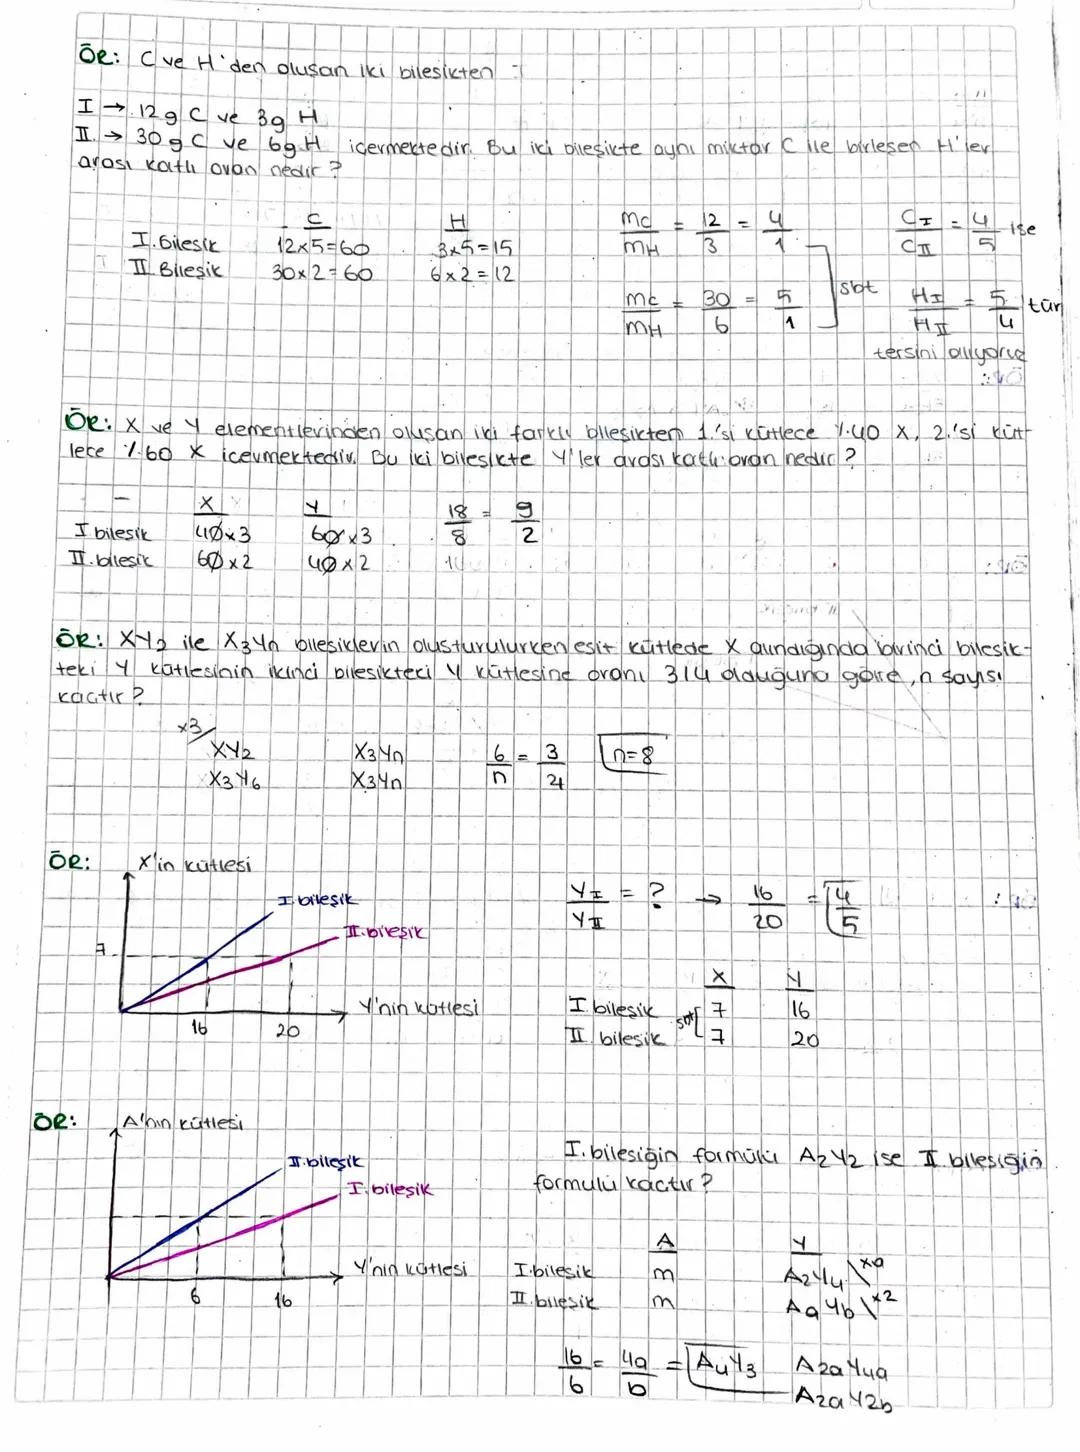 ÖR: C ve H'den oluşan iki bileşikten
I → 12g C ve 3g H
II. → 30g C ve 6g H içermektedir. Bu iki bileşikte aynı miktar C ile birleşen H'ler
arası katlı oran nedir?
C H
I. bileşik 12x5=60 3x5=15
II Bileşik 30x2=60 6x2=12
mC/mH = 12/3 = 4/1
mC/mH = 30/6 = 5/1
sbt
CI/CII = 4/5 ise
HI/HII = 5/4 tür
tersini alıyoruz
ÖR: X ve Y elementlerinden oluşan iki farklı bileşikten 1.'si kütlece %40 X, 2.'si küt-
lece %60 X içermektedir. Bu iki bileşikte Y'ler arası katlı oran nedir?
X Y
I bileşik 40x3 60x3
II. bileşik 60x2 40x2
18/8 = 9/2
ÖR: XY2 ile X3Yn bileşiklerin oluşturulurken eşit kütlede X alındığında birinci bileşik-
teki Y kütlesinin ikinci bileşikteki Y kütlesine oranı 3/4 olduğuna göre, n sayısı
kaçtır?
x3/
XY2 X3Yn
X3Y6 X3Yn
6/n = 3/4 n=8
ÖR: X'in kütlesi
I. bileşik
II. bileşik
7
Y'nin kütlesi
16 20
YI/YII = ? → 16/20 = 4/5
X Y
I bileşik 7 16
II. bileşik 7 20
sbt
ÖR: A'nın kütlesi
II. bileşik
I. bileşik
Y'nin kütlesi
6 16
I. bileşiğin formülü A2Y2 ise II. bileşiğin
formülü kaçtır?
A Y
I. bileşik m A2Y4 \xa
II. bileşik m AaYb \x2
16/6 = 4a/b = A4Y3
A2aY4a
A2aY2b